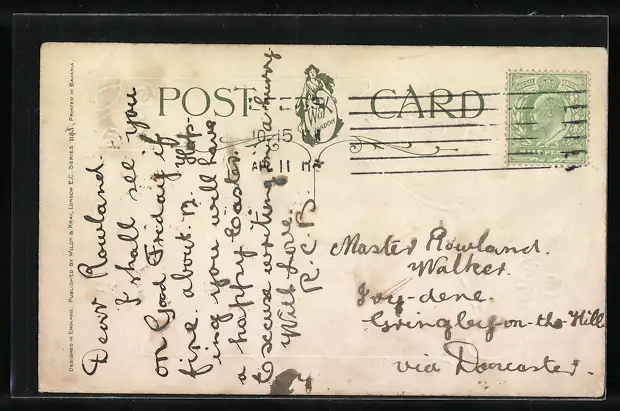 DESIGNED IN ENGLAND. PUBLISHED BY WILDT & KRAY, LONDON E.C. SERIES 1183, PRINTED IN BAVARIA.
POST CARD
W&K
LONDON
10.15
AP 11
Dear Rowland
I shall see you
on Good Friday if
fine. about. 12. Hop-
ing you will have
a happy Easter.
Excuse writing in a hurry
With love.
R. C. B
Master Rowland.
Walker.
Ivy-dene.
Gringley-on-the-Hill
via Doncaster.